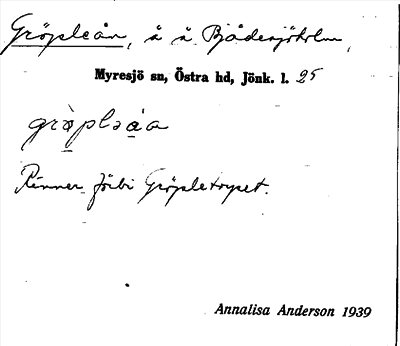 Gröpleån, å å Bjädesjöholm,
Myresjö sn, Östra hd, Jönk. l. 25
gröpleåa
Rinner förbi Gröpletorpet.
Annalisa Anderson 1939